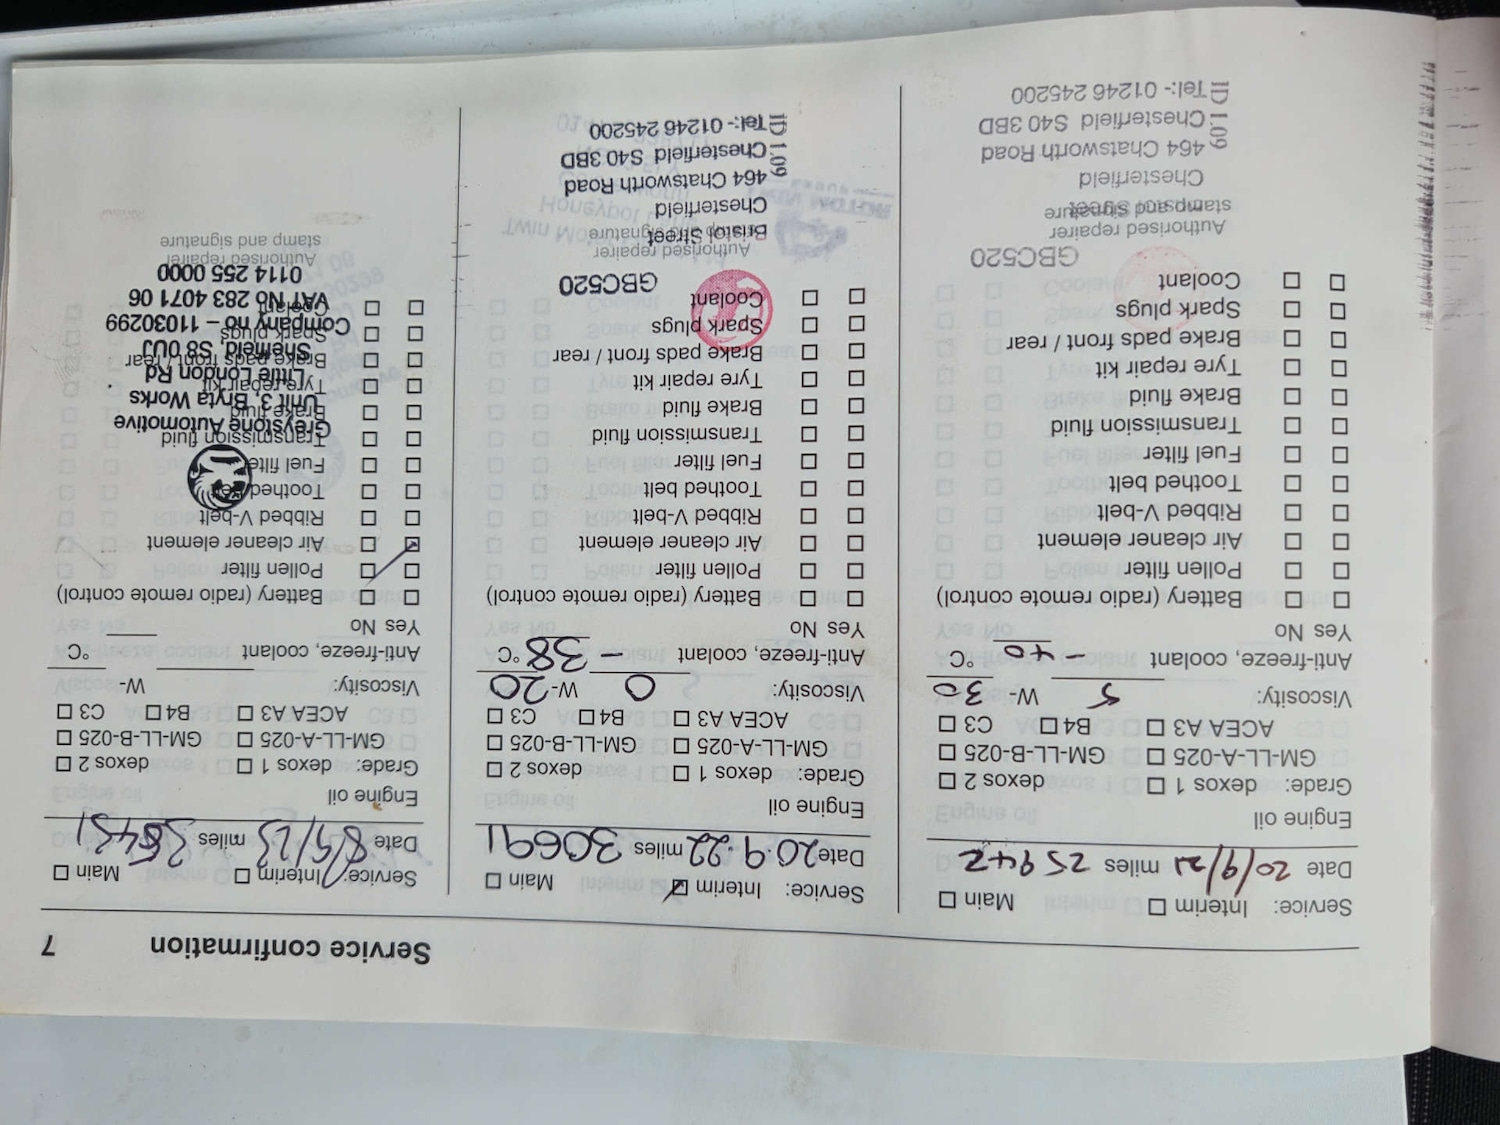 Service confirmation 7
Service: Interim ☐ Main ☐
Date 20/9/21 miles 25942
Engine oil
Grade: dexos 1 ☐ dexos 2 ☐
GM-LL-A-025 ☐ GM-LL-B-025 ☐
ACEA A3 ☐ B4 ☐ C3 ☐
Viscosity: 5 W- 30
Anti-freeze, coolant -40 °C
Yes No
☐ ☐ Battery (radio remote control)
☐ ☐ Pollen filter
☐ ☐ Air cleaner element
☐ ☐ Ribbed V-belt
☐ ☐ Toothed belt
☐ ☐ Fuel filter
☐ ☐ Transmission fluid
☐ ☐ Brake fluid
☐ ☐ Tyre repair kit
☐ ☐ Brake pads front / rear
☐ ☐ Spark plugs
☐ ☐ Coolant
GBC520
Authorised repairer
stamp and signature
Street
Chesterfield
464 Chatsworth Road
Chesterfield S40 3BD
Tel:- 01246 245200
ID 1.09
Service: Interim ☑ Main ☐
Date 20.9.22 miles 30691
Engine oil
Grade: dexos 1 ☐ dexos 2 ☐
GM-LL-A-025 ☐ GM-LL-B-025 ☐
ACEA A3 ☐ B4 ☐ C3 ☐
Viscosity: 0 W- 20
Anti-freeze, coolant -38 °C
Yes No
☐ ☐ Battery (radio remote control)
☐ ☐ Pollen filter
☐ ☐ Air cleaner element
☐ ☐ Ribbed V-belt
☐ ☐ Toothed belt
☐ ☐ Fuel filter
☐ ☐ Transmission fluid
☐ ☐ Brake fluid
☐ ☐ Tyre repair kit
☐ ☐ Brake pads front / rear
☐ ☐ Spark plugs
☐ ☐ Coolant
GBC520
Authorised repairer
stamp and signature
Bristol Street
Chesterfield
464 Chatsworth Road
Chesterfield S40 3BD
Tel:- 01246 245200
ID 1.09
Service: Interim ☐ Main ☐
Date 18/5/23 miles
Engine oil
Grade: dexos 1 ☐ dexos 2 ☐
GM-LL-A-025 ☐ GM-LL-B-025 ☐
ACEA A3 ☐ B4 ☐ C3 ☐
Viscosity: W-
Anti-freeze, coolant °C
Yes No
☐ ☐ Battery (radio remote control)
☐ ☐ Pollen filter
☑ ☐ Air cleaner element
☐ ☐ Ribbed V-belt
☐ ☐ Toothed belt
☐ ☐ Fuel filter
☐ ☐ Transmission fluid
Greystone Automotive
☐ ☐ Brake fluid
Unit 3, Bryta Works
☐ ☐ Tyre repair kit
Little London Rd
☐ ☐ Brake pads front / rear
Sheffield, S8 0UJ
☐ ☐ Spark plugs
Company no – 11030299
☐ ☐ Coolant
VAT No 283 4071 06
0114 255 0000
Authorised repairer
stamp and signature